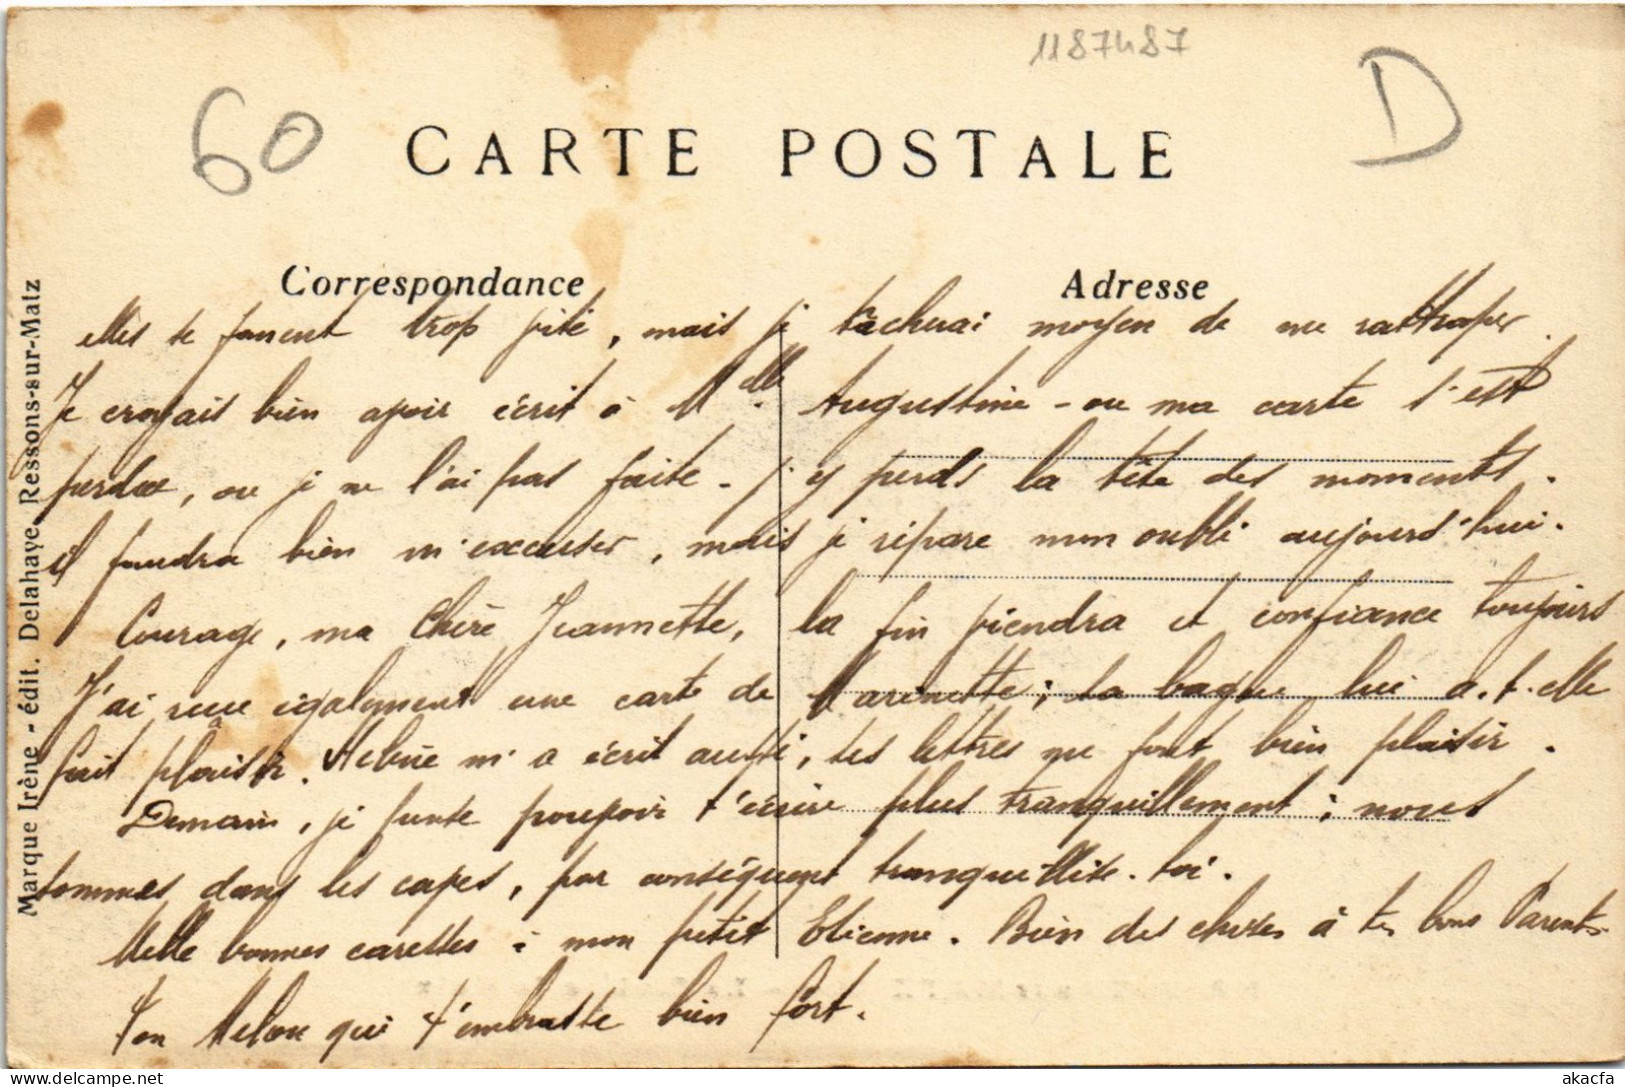 1187487
60
D
CARTE POSTALE
Correspondance
Adresse
Marque Irène - édit. Delahaye, Ressons-sur-Matz
elles se fanent trop vite, mais je tâcherai moyen de me rattraper.
Je croyais bien avoir écrit à Melle Augustine - ou ma carte s'est
perdue, ou je ne l'ai pas faite - j'y perds la tête des moments.
il faudra bien m'excuser, mais je répare mon oubli aujourd'hui.
Courage, ma Chère Jeannette, la fin viendra et confiance toujours
J'ai reçu également une carte de Marinette; la bague lui a-t-elle
fait plaisir. m'a écrit aussi, ses lettres me font bien plaisir.
Demain, je pense pouvoir t'écrire plus tranquillement; nous
sommes dans les caves, par conséquent tranquillise-toi.
Mille bonnes caresses à mon petit Etienne. Bien des choses à tes bons Parents.
Ton qui t'embrasse bien fort.
akacfa